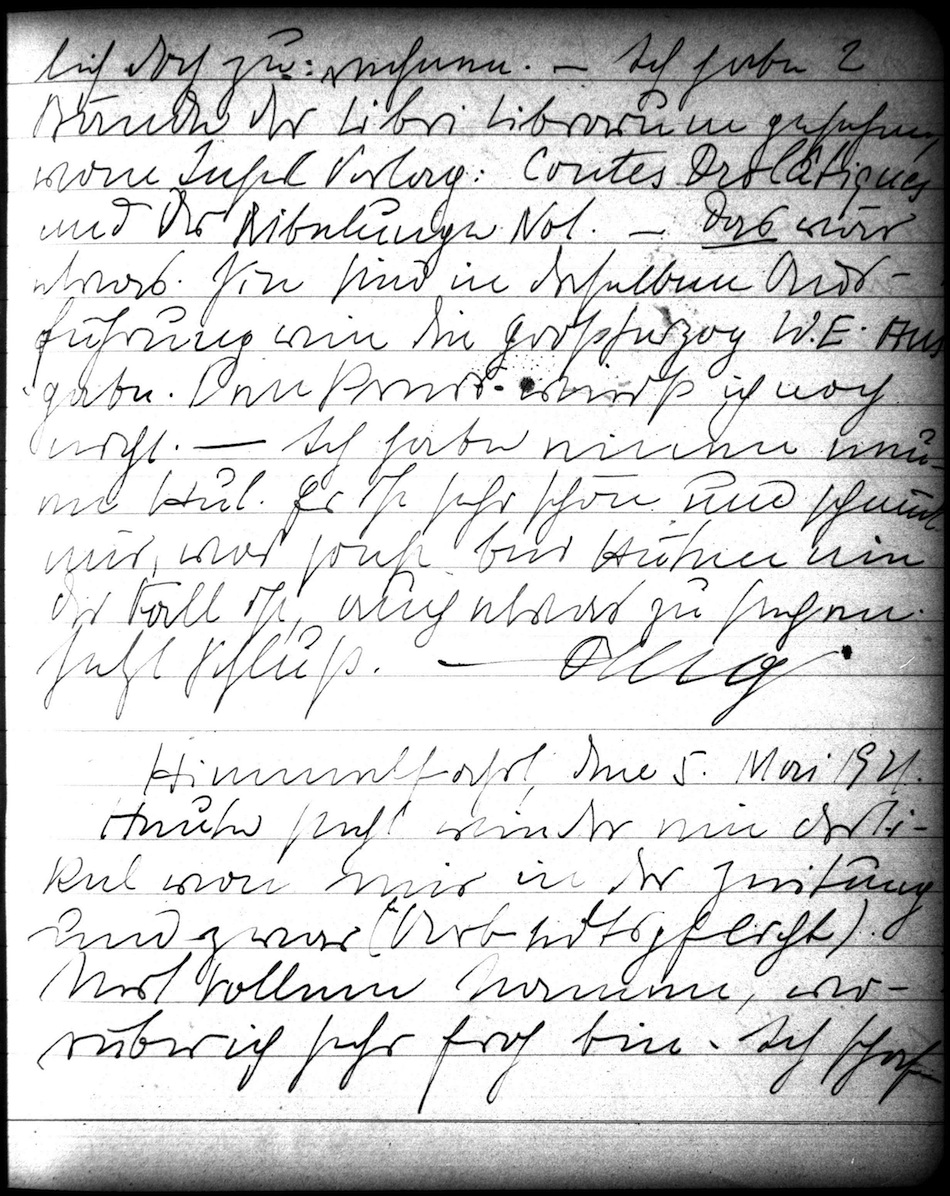 lich doch zu: nehmen. — Ich habe 2
Bände der Libri Librorum gesehen,
vom Insel Verlag: Contes Drolatiques
und Der Nibelungen Not. — das wär
etwas. Sie sind in derselben Aus-
führung wie die Großherzog W.E. Aus
gabe. Den Preis weiß ich noch
nicht. — Ich habe einen neu-
en Hut. Er ist sehr schön und scheint
mir, was sonst bei Hüten nie
der Fall ist, auch etwas zu
Jetzt Schluß. —
Himmelfahrt, den 5. Mai 1921.
Heute steht wieder ein Arti-
kel von mir in der Zeitung
und zwar (Arbeitspflicht).
Mit vollem Namen, wo-
rüber ich sehr froh bin. Ich